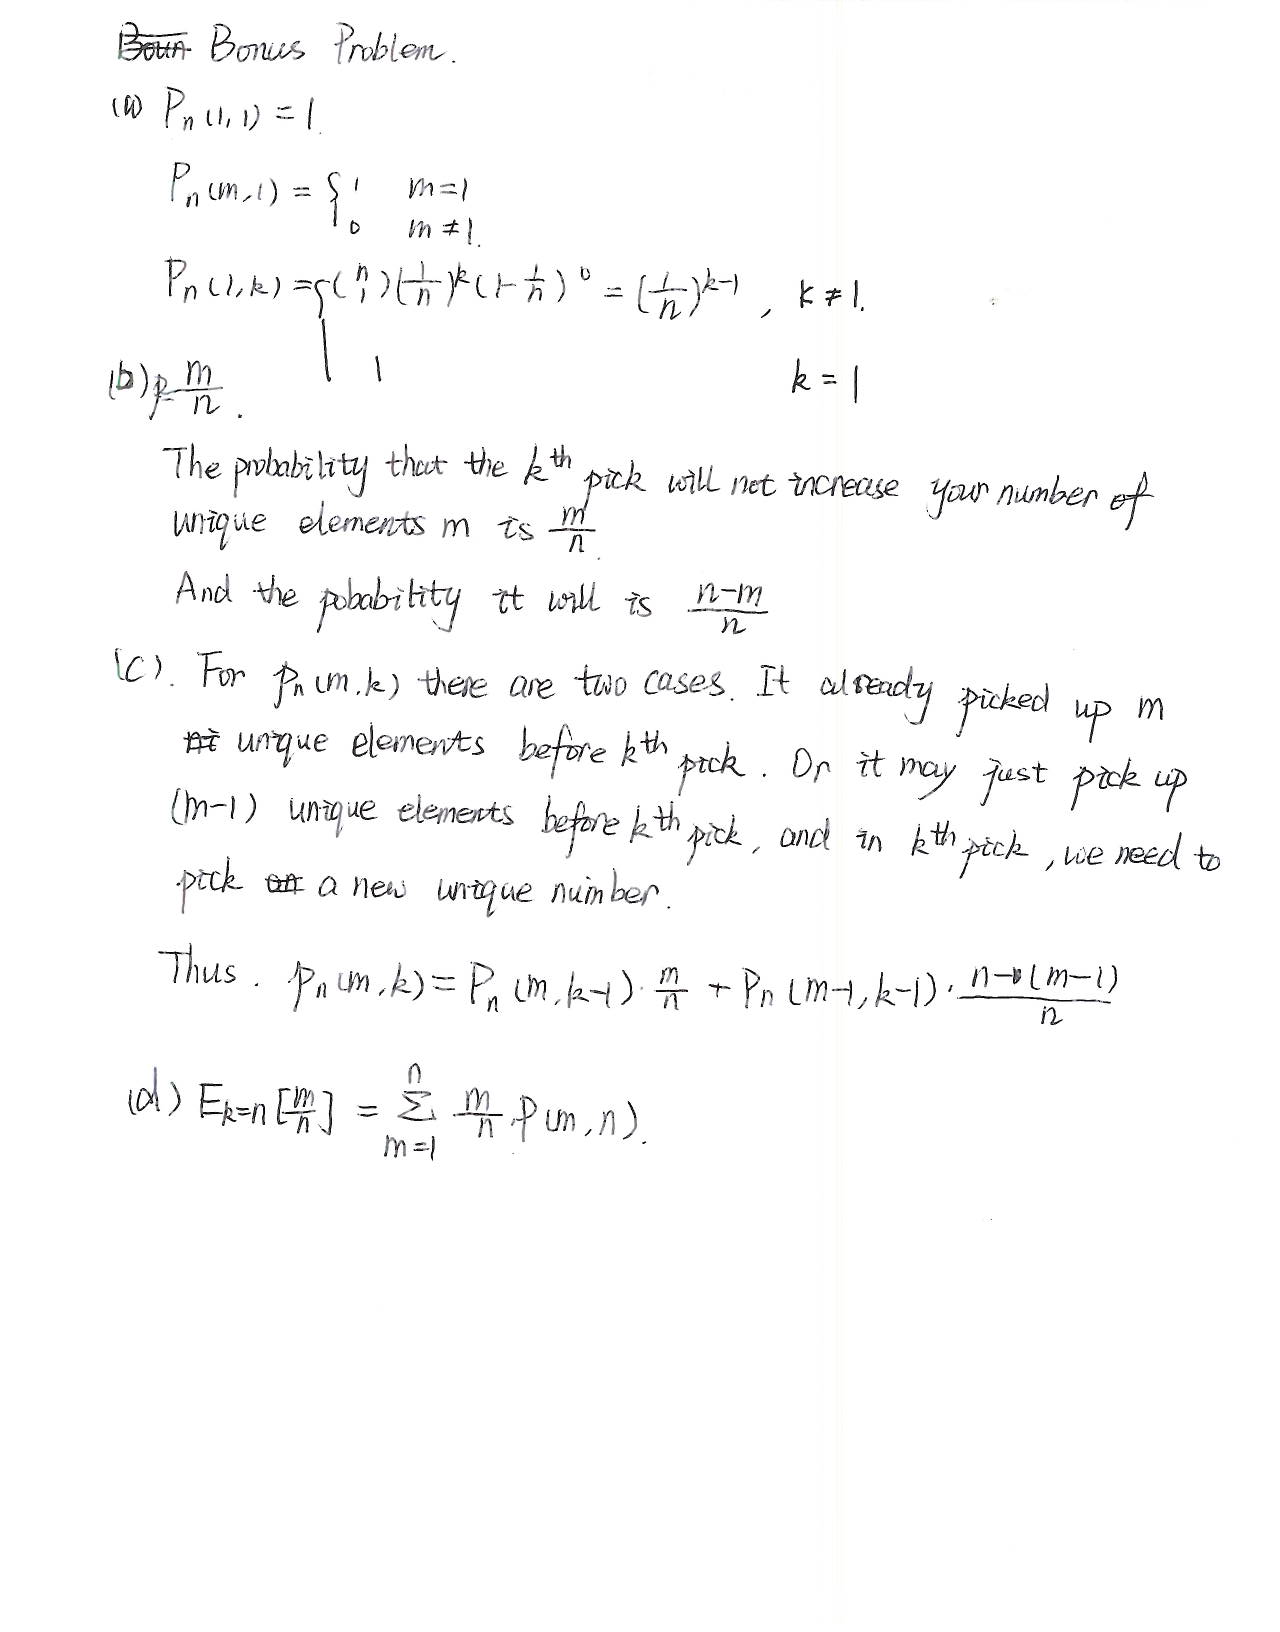 Boun Bonus Problem.
(a) Pn(1,1) = 1.
Pn(m,1) = { 1 m=1
0 m≠1.
Pn(1,k) = { (n 1)(1/n)^k(1-1/n)^0 = (1/n)^(k-1), k≠1.
1 k=1
(b) p= m/n.
The probability that the kth pick will not increase your number of
unique elements m is m/n.
And the pobability it will is (n-m)/n
(c). For pn(m,k) there are two cases. It already picked up m
unique elements before kth pick. Or it may just pick up
(m-1) unique elements before kth pick, and in kth pick, we need to
pick a new unique number.
Thus. Pn(m,k) = Pn(m,k-1)·m/n + Pn(m-1,k-1)·(n-(m-1))/n
(d) E_{k=n}[m/n] = Σ_{m=1}^{n} m/n·P(m,n).